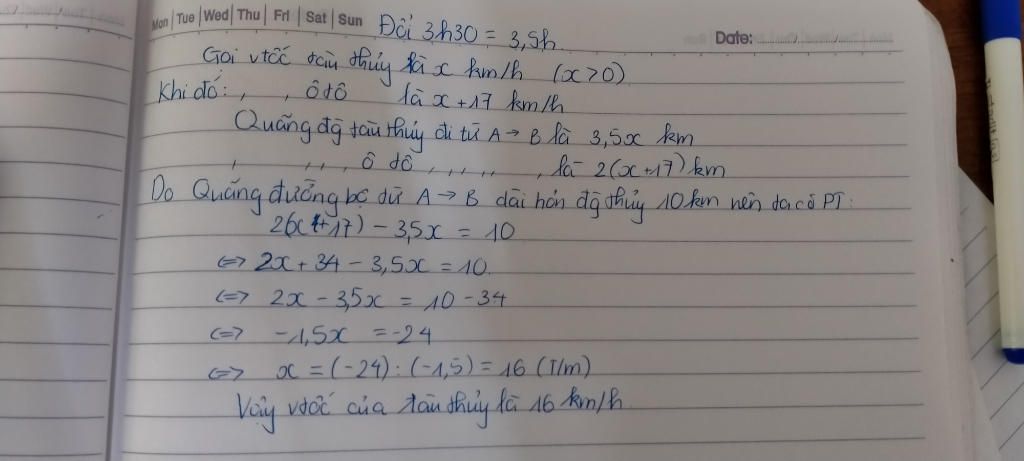 Mon | Tue | Wed | Thu | Fri | Sat | Sun
Date:
Đổi 3h30 = 3,5h
Gọi vtốc tàu thủy là x km/h (x>0)
Khi đó: , , ô tô là x+17 km/h
Quãng đg tàu thủy đi từ A → B là 3,5x km
, , , , ô tô , , , , , , là 2(x+17) km
Do Quãng đường bộ từ A → B dài hơn đg thủy 10km nên ta có PT:
2(x+17) - 3,5x = 10
<=> 2x + 34 - 3,5x = 10.
<=> 2x - 3,5x = 10 - 34
<=> -1,5x = -24
<=> x = (-24) : (-1,5) = 16 (T/m)
Vậy vtốc của tàu thủy là 16 km/h.